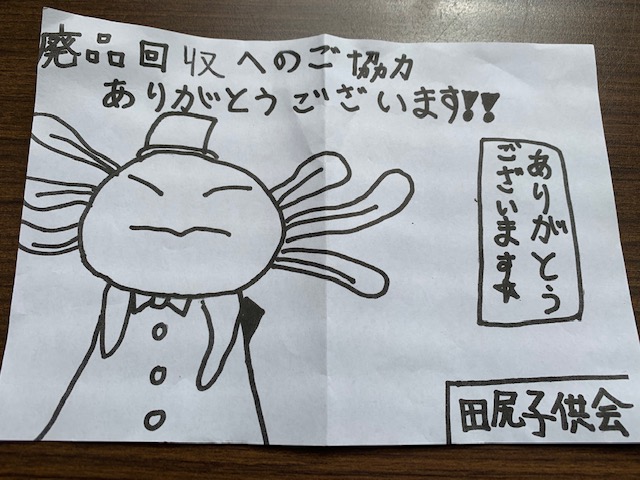 廃品回収へのご協力
ありがとうございます!!
ありがとう
ございます☆
田尻子供会